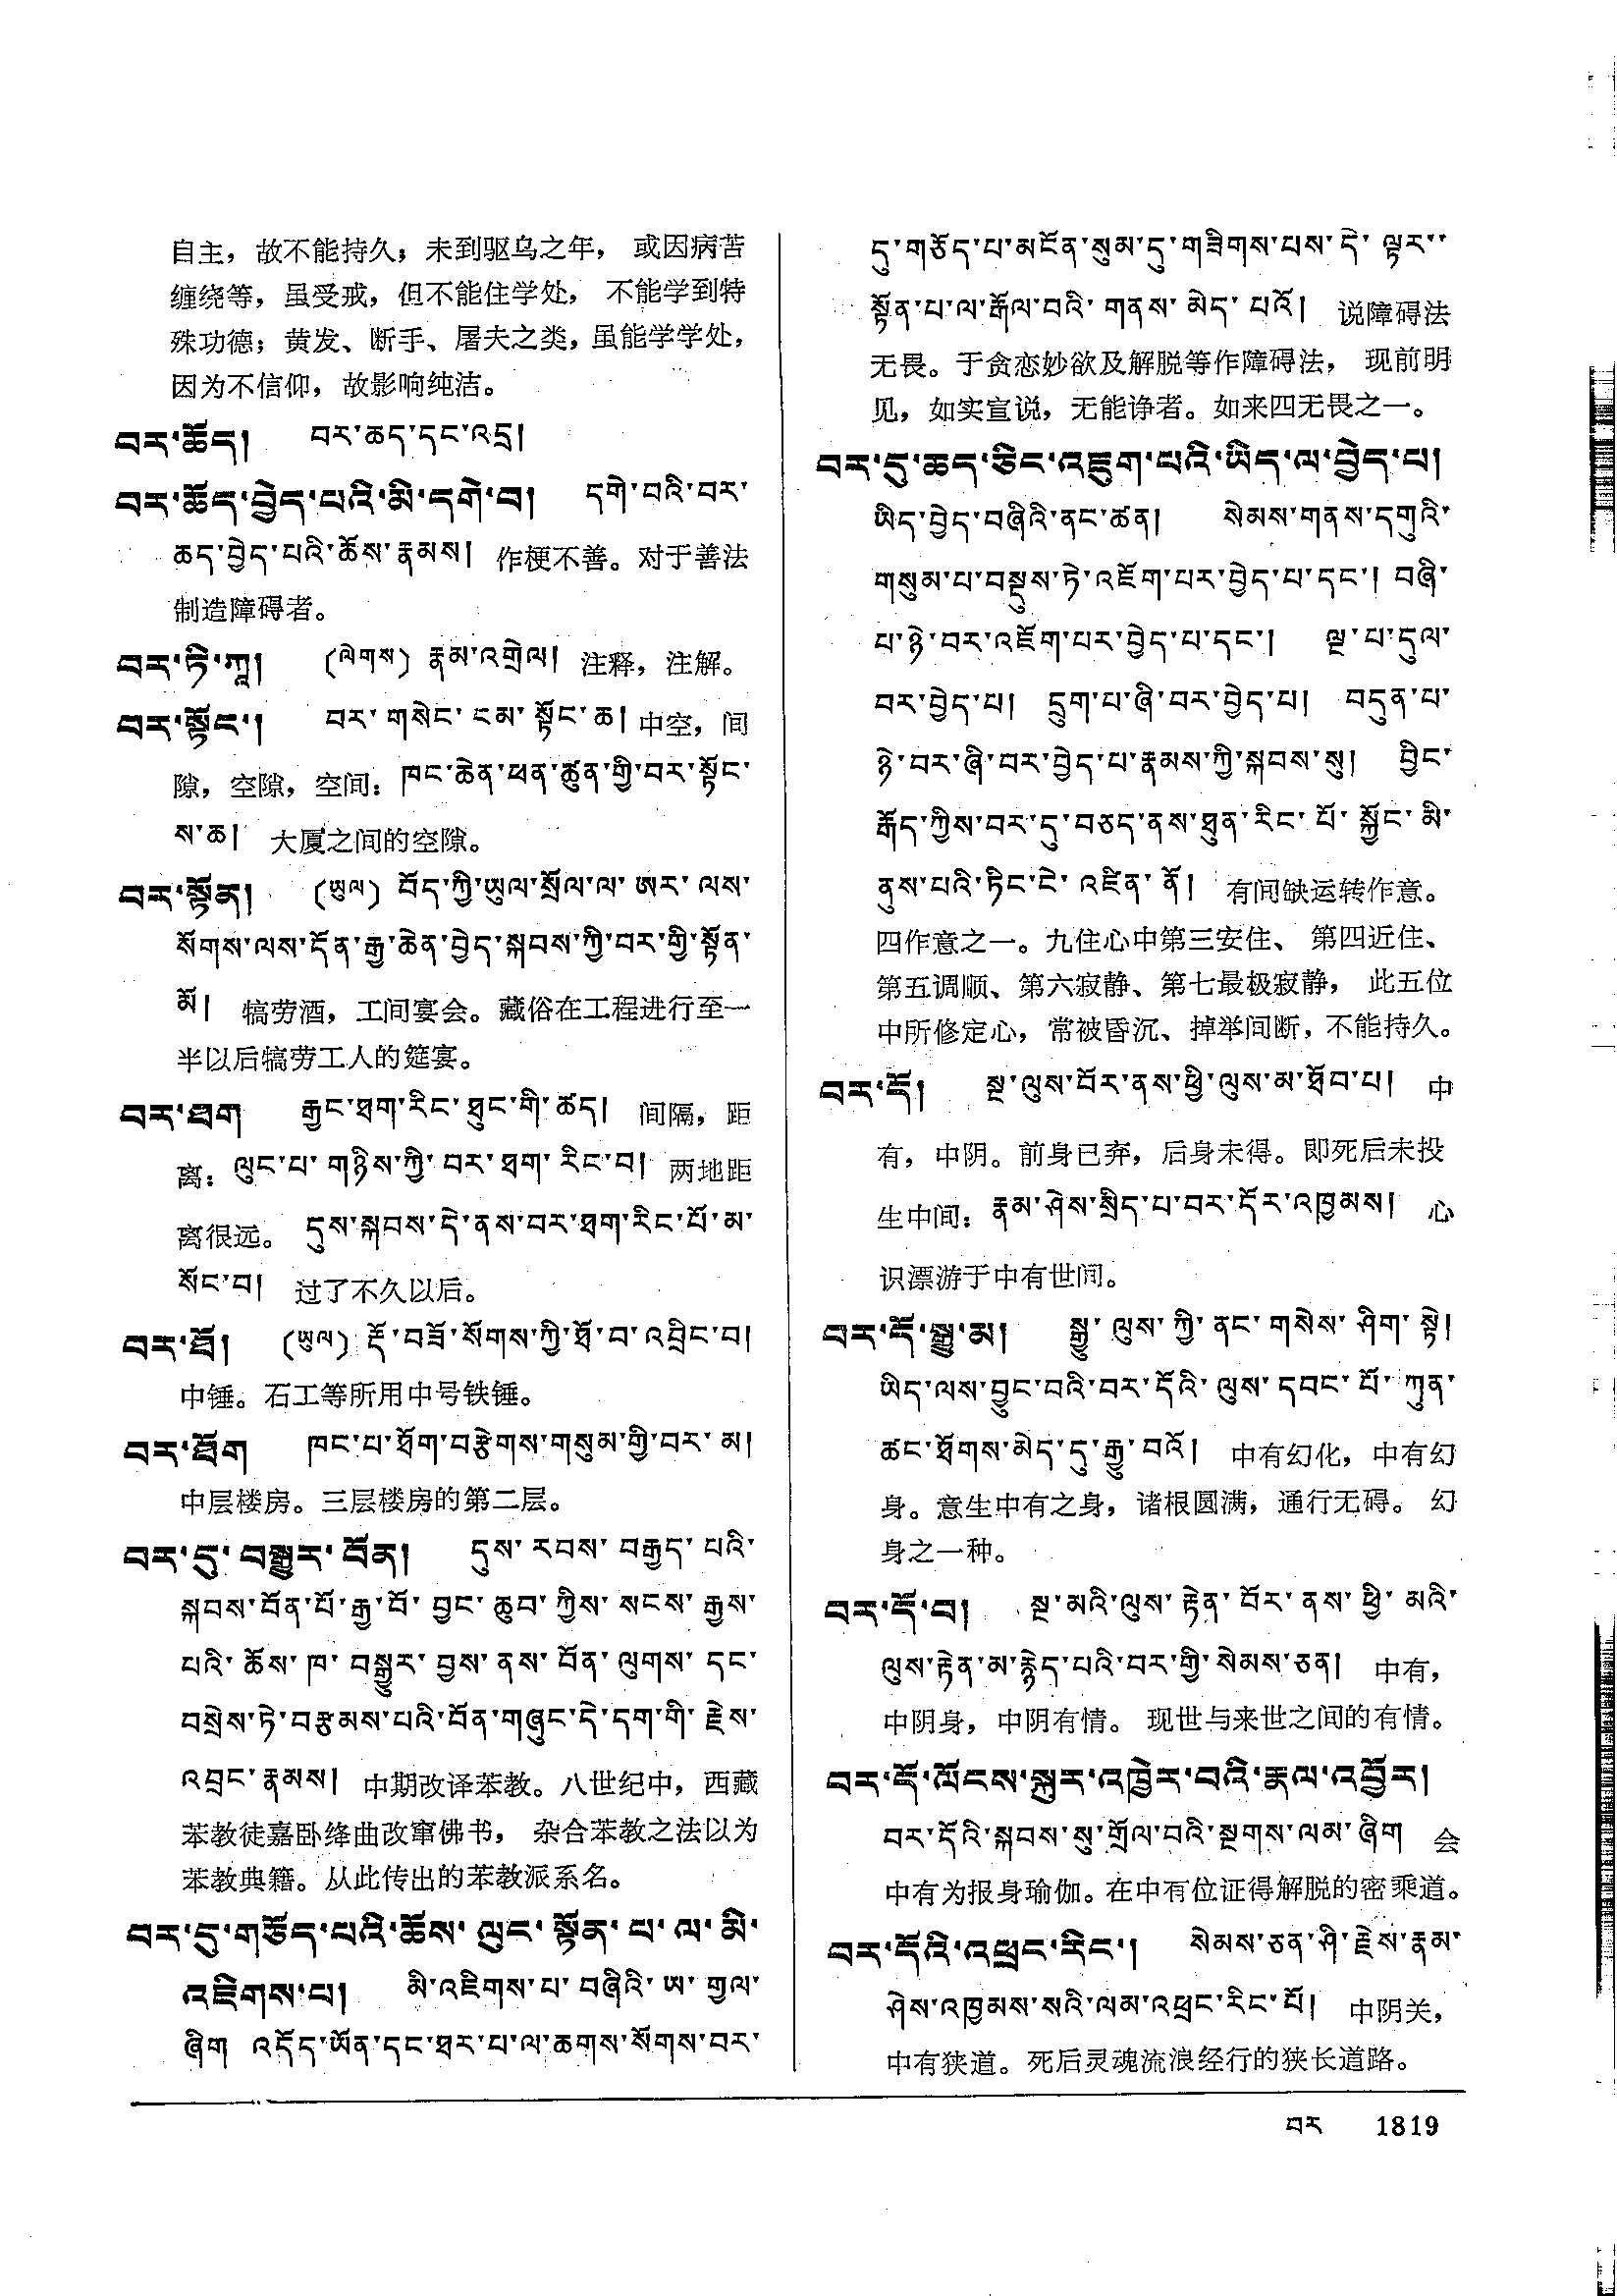 自主，故不能持久；未到驱乌之年， 或因病苦
缠绕等，虽受戒，但不能住学处， 不能学到特
殊功德；黄发、断手、屠夫之类，虽能学学处，
因为不信仰，故影响纯洁。
བར་ཆོད། བར་ཆད་དང་འདྲ།
བར་ཆོད་བྱེད་པའི་མི་དགེ་བ། དགེ་བའི་བར་
ཆད་བྱེད་པའི་ཆོས་རྣམས། 作梗不善。对于善法
制造障碍者。
བར་ཏི་ཀཱ། (ལེགས) རྣམ་འགྲེལ། 注释，注解。
བར་སྟོང་། བར་གསེང་ངམ་སྟོང་ཆ། 中空，间
隙，空隙，空间：ཁང་ཆེན་ཕན་ཚུན་གྱི་བར་སྟོང་
ས་ཆ། 大厦之间的空隙。
བར་སྟོན། (ཡུལ) བོད་ཀྱི་ཡུལ་སྲོལ་ལ་ཨར་ལས་
སོགས་ལས་དོན་རྒྱ་ཆེན་བྱེད་སྐབས་ཀྱི་བར་གྱི་སྟོན་
མོ། 犒劳酒，工间宴会。藏俗在工程进行至一
半以后犒劳工人的筵宴。
བར་ཐག རྒྱང་ཐག་རིང་ཐུང་གི་ཚད། 间隔，距
离：ལུང་པ་གཉིས་ཀྱི་བར་ཐག་རིང་བ། 两地距
离很远。 དུས་སྐབས་དེ་ནས་བར་ཐག་རིང་པོ་མ་
སོང་བ། 过了不久以后。
བར་ཐོ། (ཡུལ) རྡོ་བཟོ་སོགས་ཀྱི་ཐོ་བ་འབྲིང་བ།
中锤。石工等所用中号铁锤。
བར་ཐོག ཁང་པ་ཐོག་བརྩེགས་གསུམ་གྱི་བར་མ།
中层楼房。三层楼房的第二层。
བར་དུ་བསྒྱུར་བོན། དུས་རབས་བརྒྱད་པའི་
སྐབས་བོན་པོ་རྒྱ་བོ་བྱང་ཆུབ་ཀྱིས་སངས་རྒྱས་
པའི་ཆོས་ཁ་བསྒྱུར་བྱས་ནས་བོན་ལུགས་དང་
བསྲེས་ཏེ་བརྩམས་པའི་བོན་གཞུང་དེ་དག་གི་རྗེས་
འབྲང་རྣམས། 中期改译苯教。八世纪中，西藏
苯教徒嘉卧绛曲改窜佛书， 杂合苯教之法以为
苯教典籍。从此传出的苯教派系名。
བར་དུ་གཅོད་པའི་ཆོས་ལུང་སྟོན་པ་ལ་མི་
འཇིགས་པ། མི་འཇིགས་པ་བཞིའི་ཨ་གྱལ་
ཞིག འདོད་ཡོན་དང་ཐར་པ་ལ་ཆགས་སོགས་བར་
དུ་གཅོད་པ་མངོན་སུམ་དུ་གཟིགས་པས་དེ་ལྟར་་
སྟོན་པ་ལ་རྒོལ་བའི་གནས་མེད་པའོ། 说障碍法
无畏。于贪恋妙欲及解脱等作障碍法， 现前明
见，如实宣说，无能诤者。如来四无畏之一。
བར་དུ་ཆད་ཅིང་འཇུག་པའི་ཡིད་ལ་བྱེད་པ།
ཡིད་བྱེད་བཞིའི་ནང་ཚན། སེམས་གནས་དགུའི་
གསུམ་པ་བསྡུས་ཏེ་འཇོག་པར་བྱེད་པ་དང་། བཞི་
པ་ཉེ་བར་འཇོག་པར་བྱེད་པ་དང་། ལྔ་པ་དུལ་
བར་བྱེད་པ། དྲུག་པ་ཞི་བར་བྱེད་པ། བདུན་པ་
ཉེ་བར་ཞི་བར་བྱེད་པ་རྣམས་ཀྱི་སྐབས་སུ། བྱིང་
རྒོད་ཀྱིས་བར་དུ་བཅད་ནས་ཐུན་རིང་པོ་སྐྱོང་མི་
ནུས་པའི་ཏིང་ངེ་འཛིན་ནོ། 有间缺运转作意。
四作意之一。九住心中第三安住、 第四近住、
第五调顺、第六寂静、第七最极寂静， 此五位
中所修定心，常被昏沉、掉举间断，不能持久。
བར་དོ། སྔ་ལུས་བོར་ནས་ཕྱི་ལུས་མ་ཐོབ་པ། 中
有，中阴。前身已弃，后身未得。即死后未投
生中间：རྣམ་ཤེས་སྲིད་པ་བར་དོར་འཁྱམས། 心
识漂游于中有世间。
བར་དོ་སྒྱུ་མ། སྒྱུ་ལུས་ཀྱི་ནང་གསེས་ཤིག་སྟེ།
ཡིད་ལས་བྱུང་བའི་བར་དོའི་ལུས་དབང་པོ་ཀུན་
ཚང་ཐོགས་མེད་དུ་རྒྱུ་བའོ། 中有幻化，中有幻
身。意生中有之身，诸根圆满，通行无碍。 幻
身之一种。
བར་དོ་བ། སྔ་མའི་ལུས་རྟེན་བོར་ནས་ཕྱི་མའི་
ལུས་རྟེན་མ་རྙེད་པའི་བར་གྱི་སེམས་ཅན། 中有，
中阴身，中阴有情。 现世与来世之间的有情。
བར་དོ་ལོངས་སྐུར་འཁྱེར་བའི་རྣལ་འབྱོར།
བར་དོའི་སྐབས་སུ་གྲོལ་བའི་སྔགས་ལམ་ཞིག 会
中有为报身瑜伽。在中有位证得解脱的密乘道。
བར་དོའི་འཕྲང་རིང་། སེམས་ཅན་ཤི་རྗེས་རྣམ་
ཤེས་འཁྱམས་སའི་ལམ་འཕྲང་རིང་པོ། 中阴关，
中有狭道。死后灵魂流浪经行的狭长道路。
བར 1819